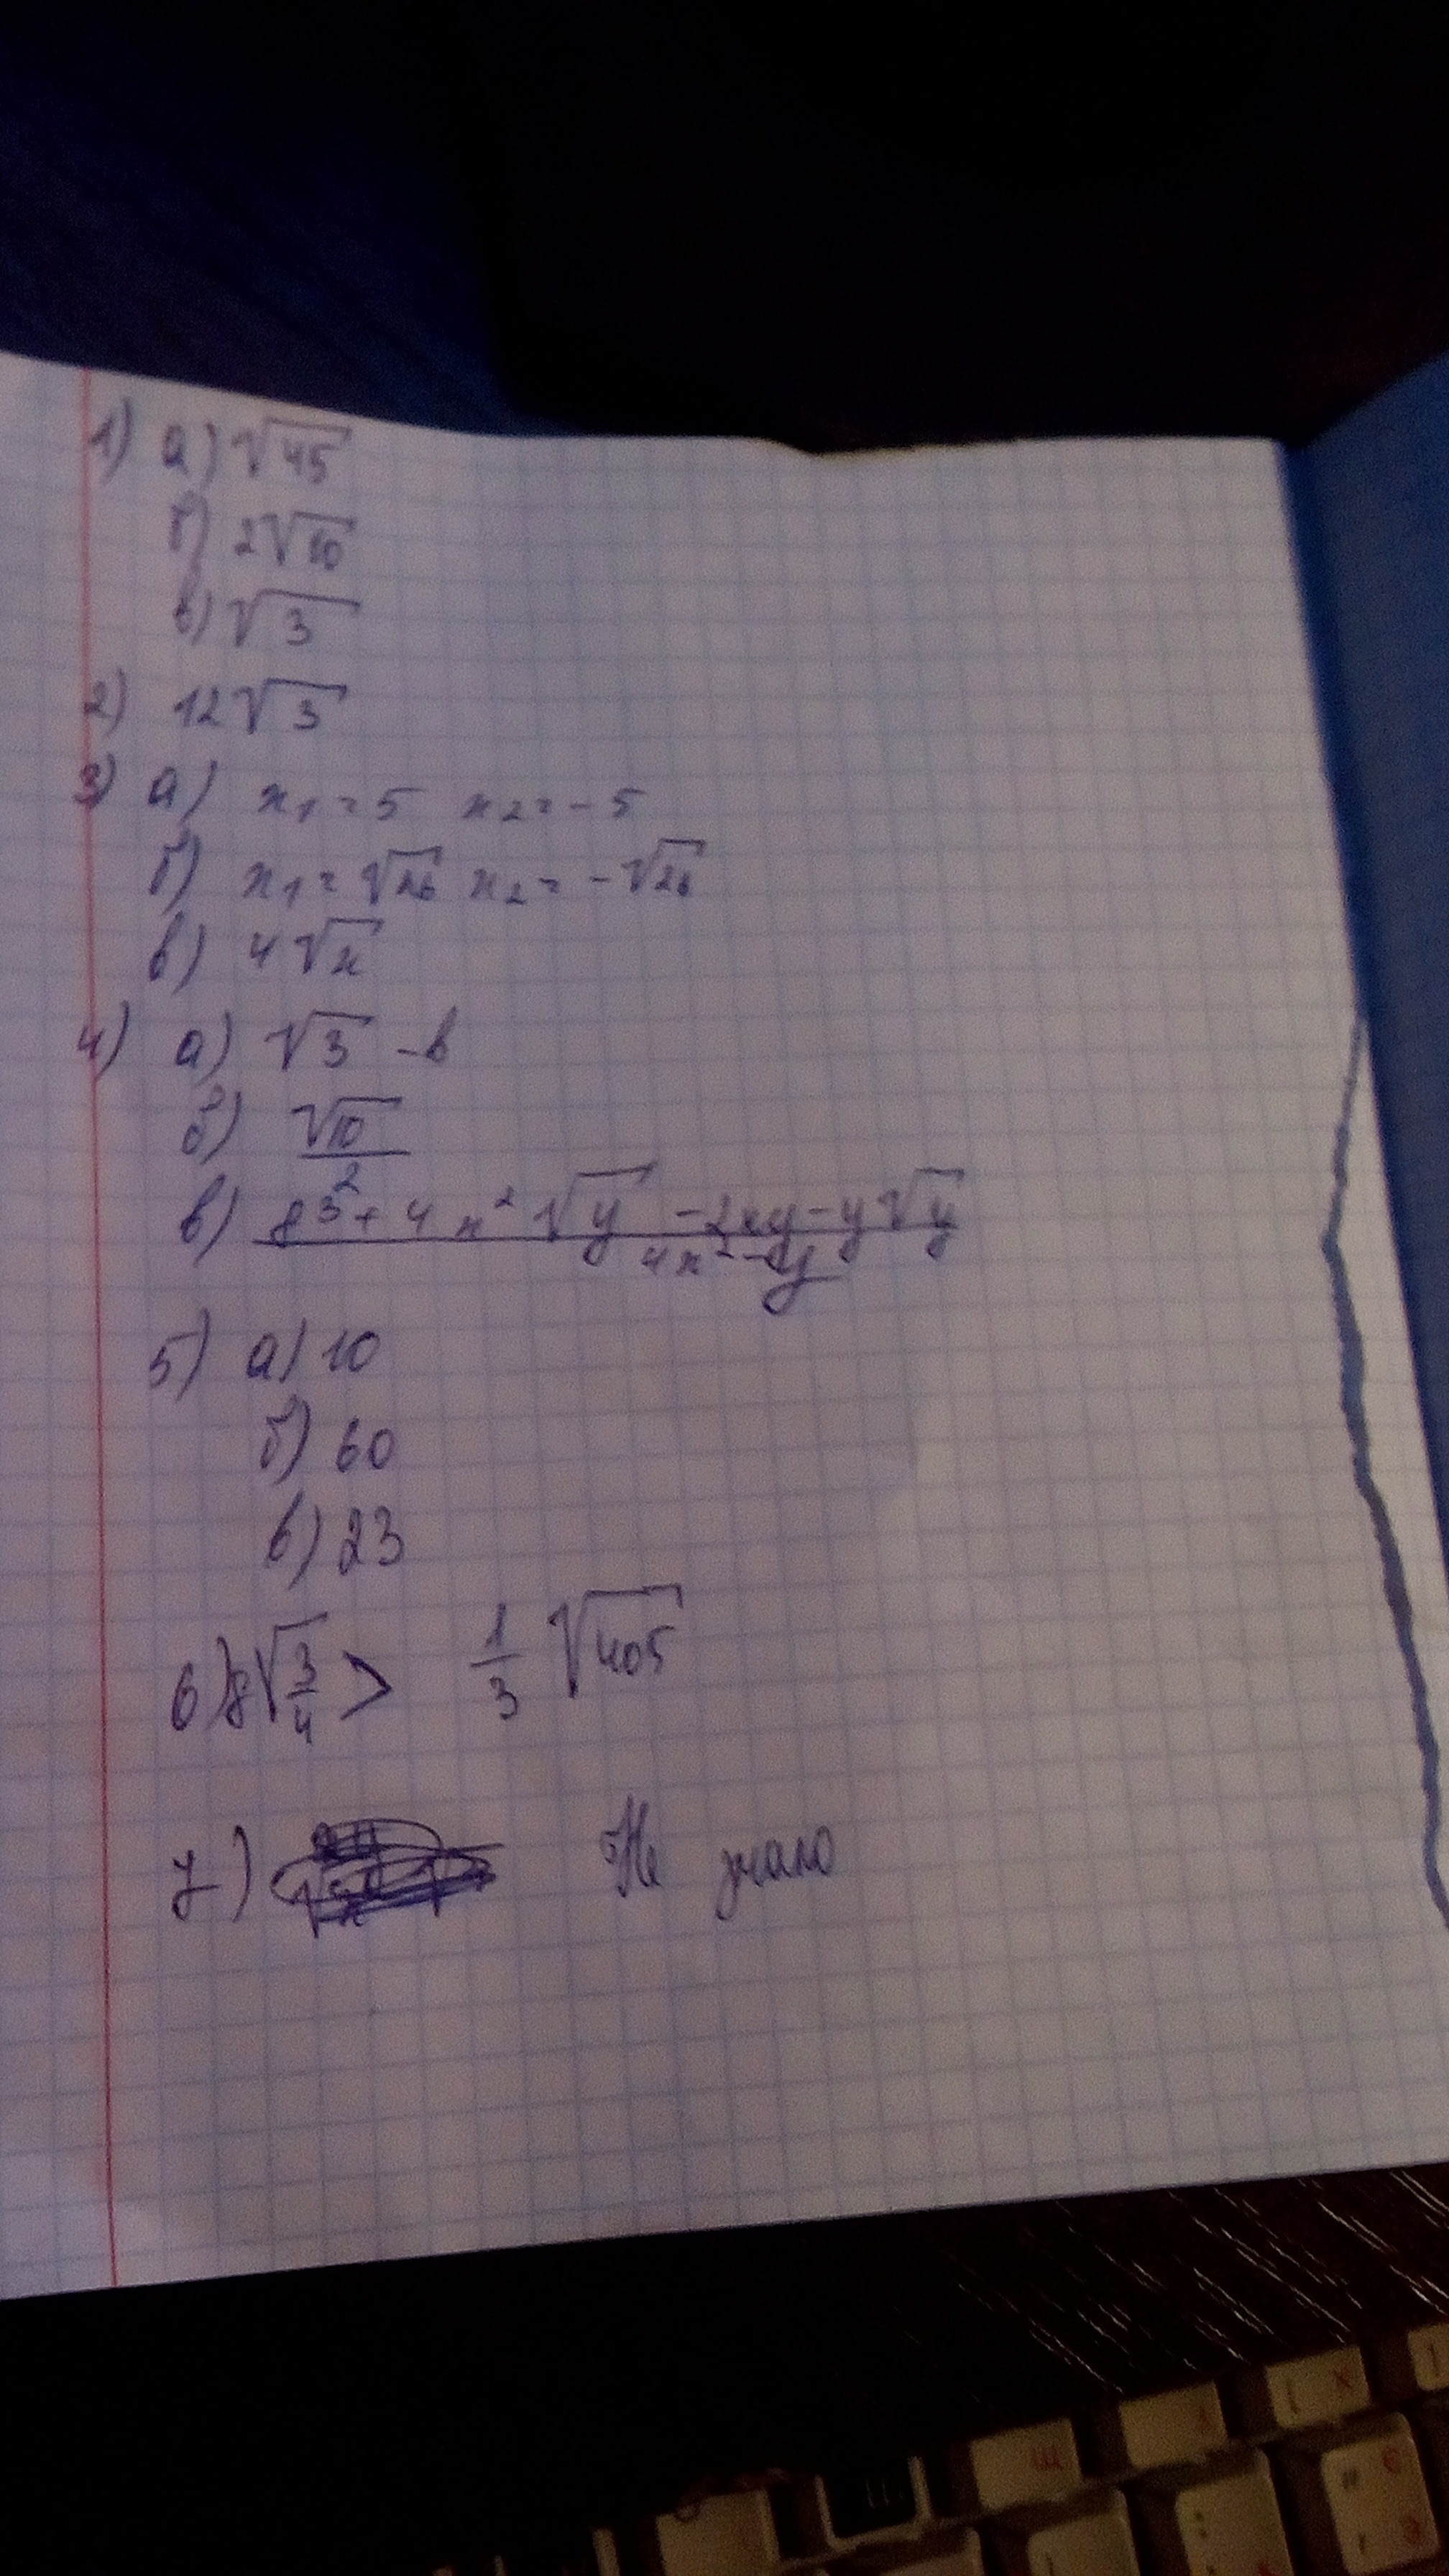 1) а) √45
б) 2√10
в) √3
2) 12√3
3) а) x₁=5 x₂=-5
б) x₁=√26 x₂=-√26
в) 4√x
4) а) √3 -в
б) √10/2
в) (8³+4x²√y -2xy-y√y)/(4x²-y)
5) а) 10
б) 60
в) 23
6) 8√(3/4) > 1/3 √405
7) Не знаю